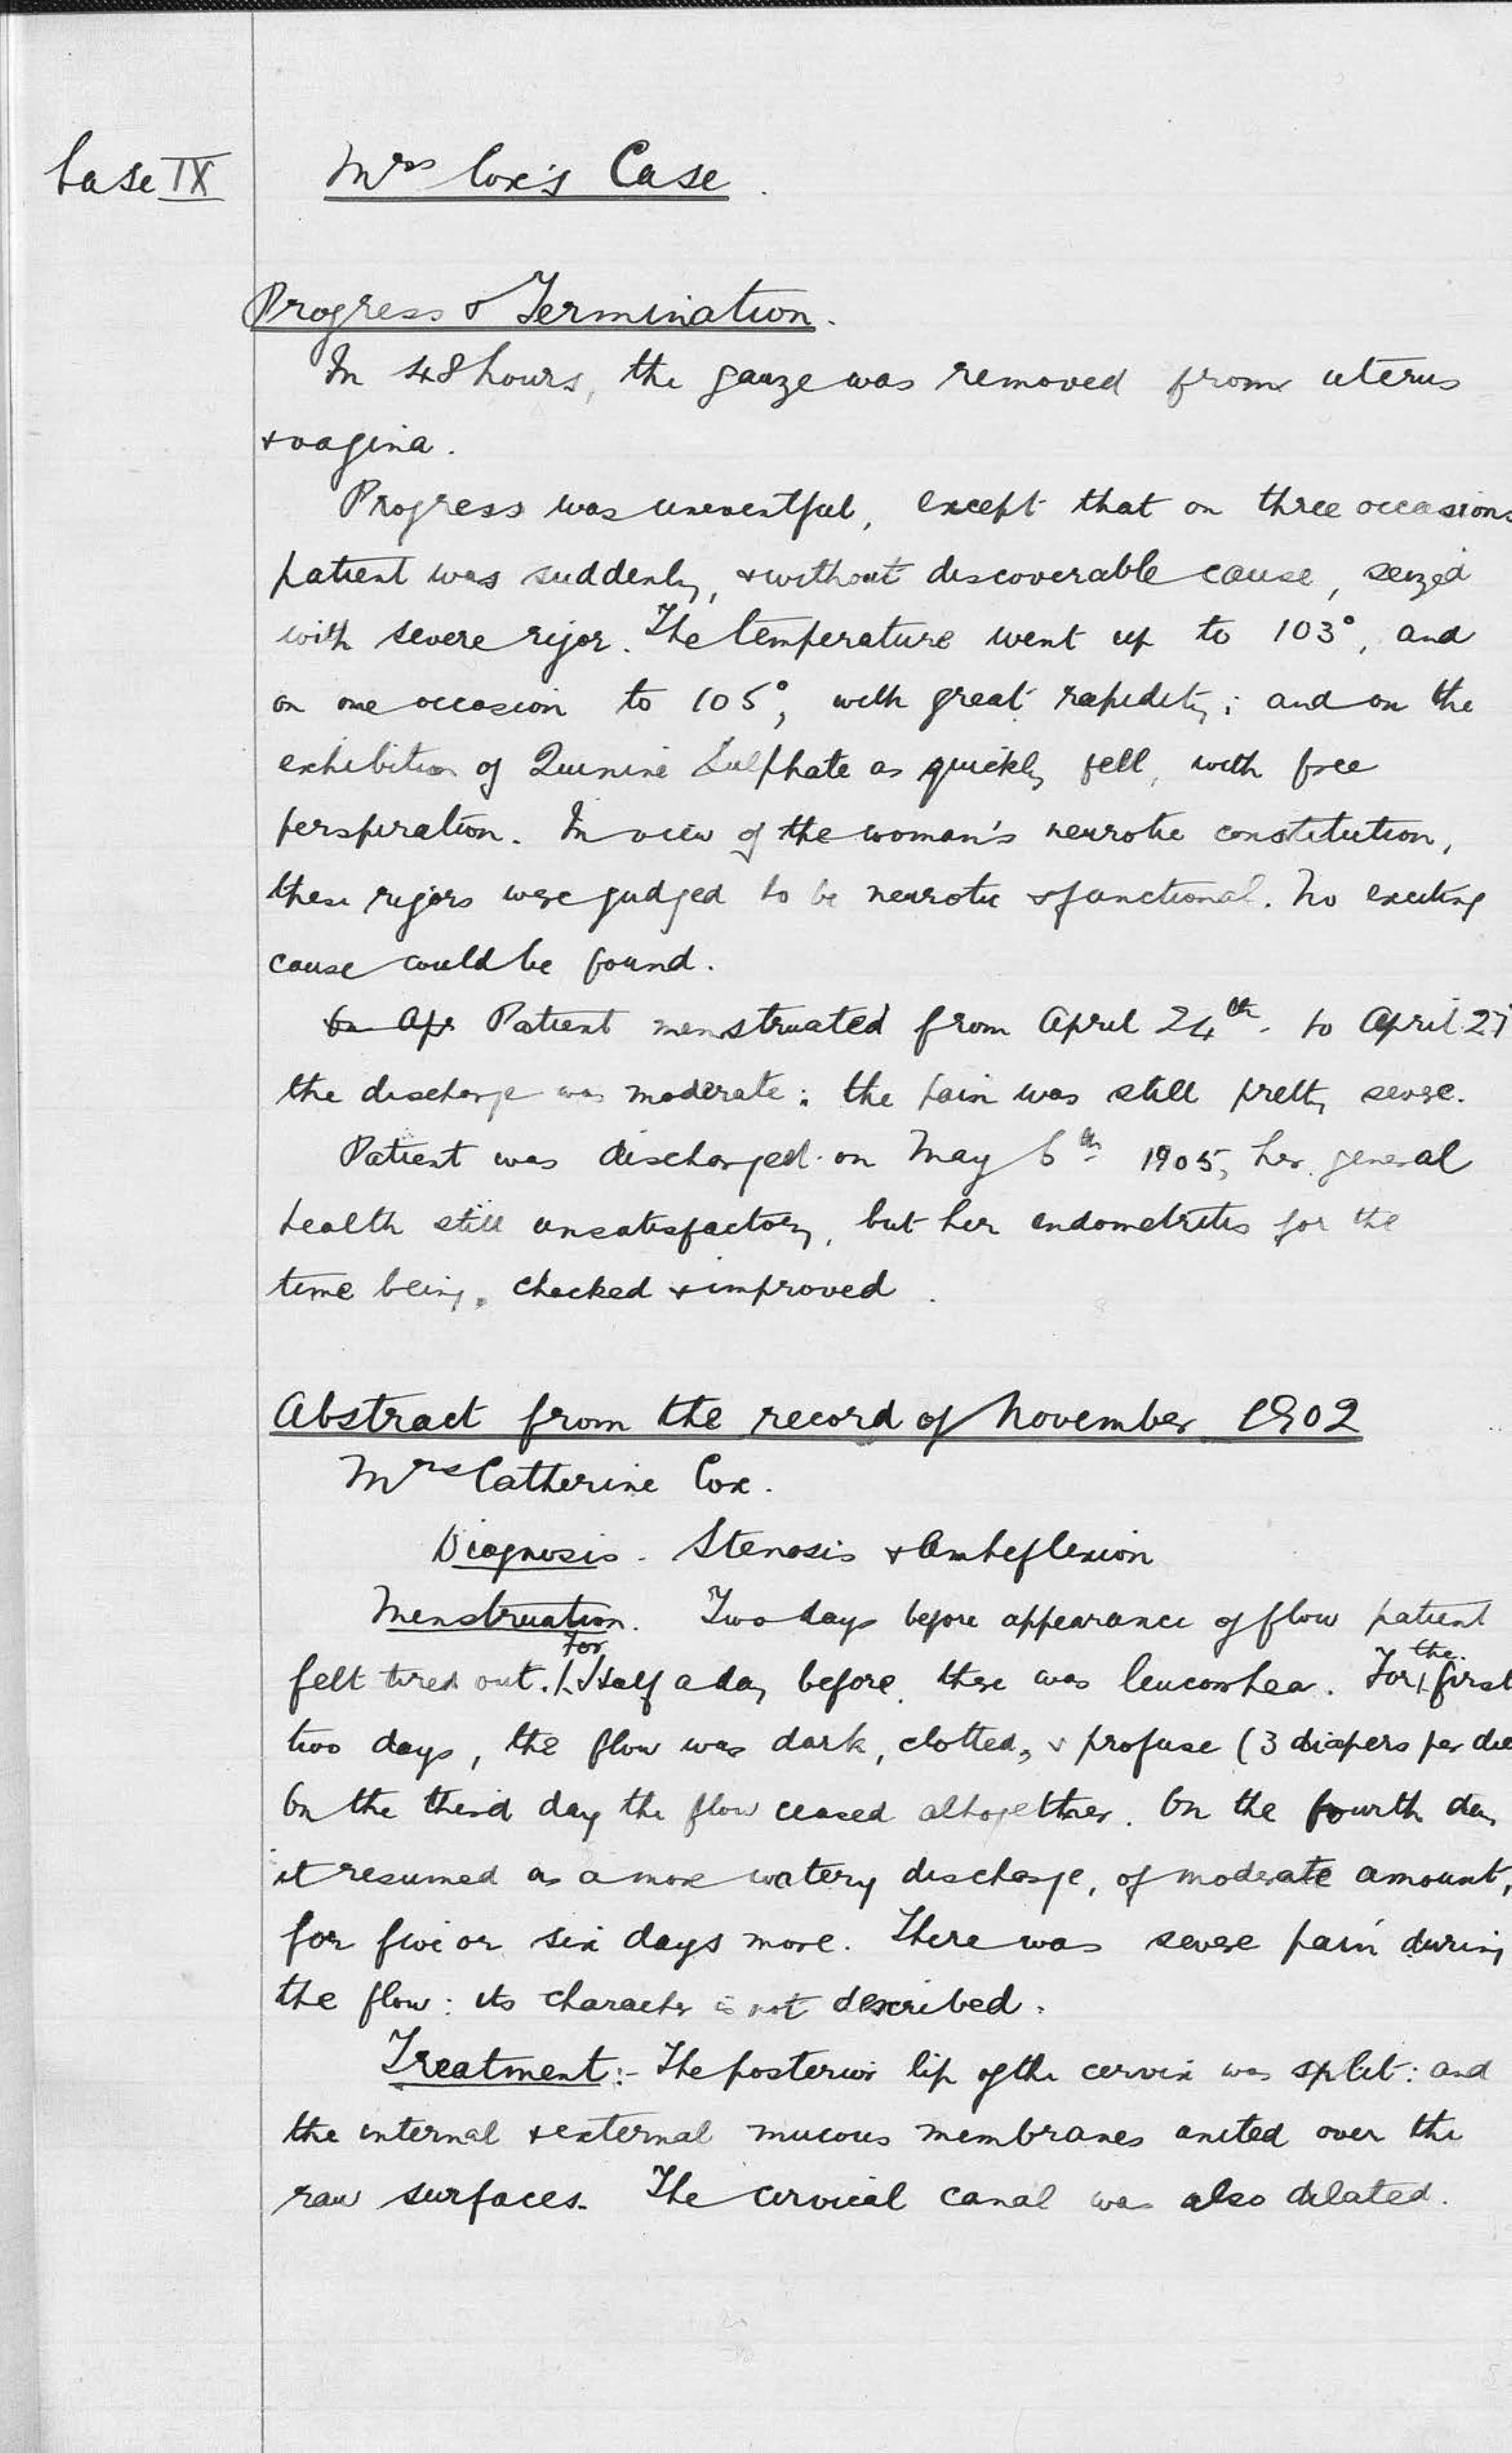 Case IX
Mrs Cox's Case.
Progress & Termination.
In 48 hours, the gauze was removed from uterus
& vagina.
Progress was uneventful, except that on three occasions
patient was suddenly, & without discoverable cause, seized
with severe rigor. The temperature went up to 103°, and
on one occasion to 105°, with great rapidity; and on the
exhibition of Quinine Sulphate as quickly fell, with free
perspiration. In view of the woman's neurotic constitution,
these rigors were judged to be neurotic & functional. No exciting
cause could be found.
On Apr Patient menstruated from April 24th. to April 27
the discharge was moderate: the pain was still pretty severe.
Patient was discharged on May 6th 1905, her general
health still unsatisfactory, but her endometritis for the
time being, checked & improved.
Abstract from the record of November 1902
Mrs Catherine Cox.
Diagnosis. Stenosis & Anteflexion
Menstruation. Two days before appearance of flow patient
felt tired out. For Half a day before, there was leucorrhea. For the first
two days, the flow was dark, clotted, & profuse (3 diapers per die
On the third day the flow ceased altogether. On the fourth day
it resumed as a more watery discharge, of moderate amount,
for five or six days more. There was severe pain during
the flow: its character is not described.
Treatment:- The posterior lip of the cervix was split: and
the internal & external mucous membranes united over the
raw surfaces. The cervical canal was also dilated.